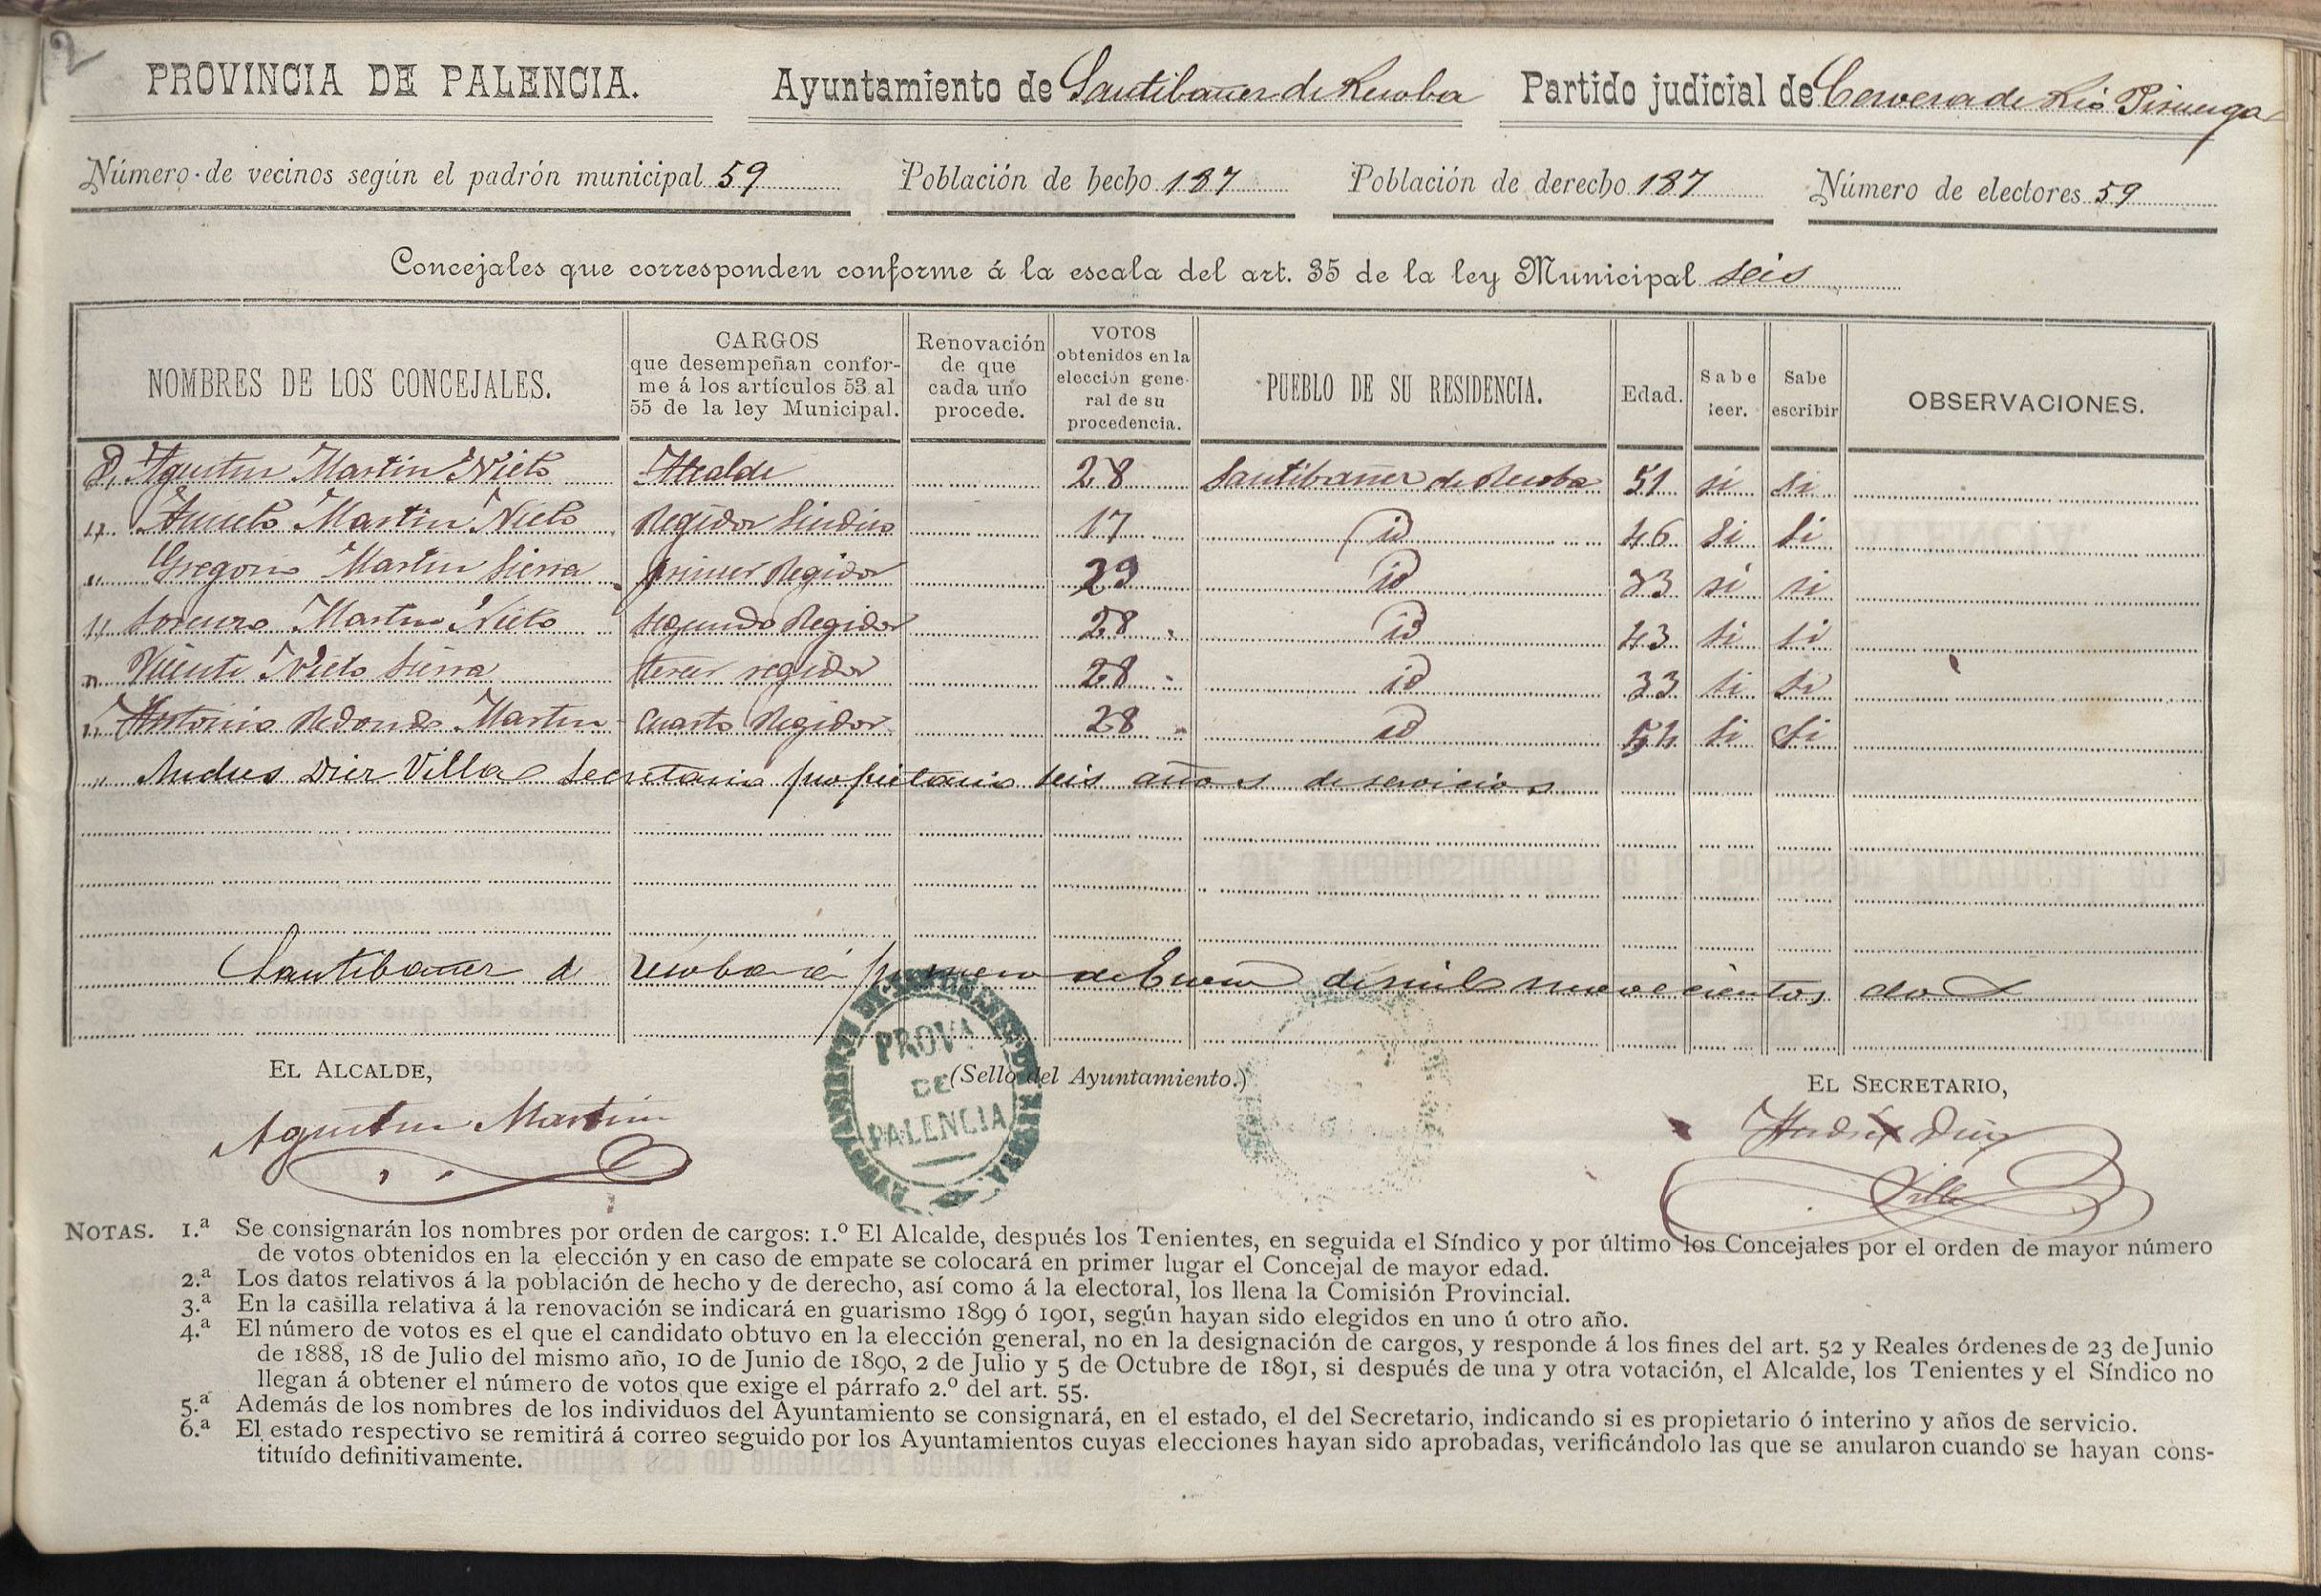 2
PROVINCIA DE PALENCIA. Ayuntamiento de Santibañez de Recoba Partido judicial de Cervera de Rio Pisuerga
Número de vecinos según el padrón municipal 59 Población de hecho 187 Población de derecho 187 Número de electores 59
Concejales que corresponden conforme á la escala del art. 35 de la ley Municipal seis
NOMBRES DE LOS CONCEJALES. CARGOS que desempeñan confor- me á los artículos 53 al 55 de la ley Municipal. Renovación de que cada uno procede. VOTOS obtenidos en la elección gene- ral de su procedencia. PUEBLO DE SU RESIDENCIA. Edad. Sabe leer. Sabe escribir OBSERVACIONES.
D. Agustin Martin Nieto Alcalde 28 Santibañez de Recoba 51 si si
" Aniceto Martin Nieto Regidor Sindico 17 id 46 si si
" Gregorio Martin Sierra primer Regidor 29 id 33 si si
" Lorenzo Martin Nieto segundo Regidor 28 id 43 si si
" Vicente Nieto Sierra tercer regidor 28 id 33 si si
" Antonio Redondo Martin Cuarto Regidor 28 id 54 si si
" Andres Diez Villa Secretario propietario seis años de servicios
Santibañez de recoba á primero de Enero de mil novecientos dos
EL ALCALDE,
(Sello del Ayuntamiento.)
EL SECRETARIO,
Agustin Martin
Andres Diez
Villa
PROVA
DE
PALENCIA
NOTAS. 1.ª Se consignarán los nombres por orden de cargos: 1.º El Alcalde, después los Tenientes, en seguida el Síndico y por último los Concejales por el orden de mayor número
de votos obtenidos en la elección y en caso de empate se colocará en primer lugar el Concejal de mayor edad.
2.ª Los datos relativos á la población de hecho y de derecho, así como á la electoral, los llena la Comisión Provincial.
3.ª En la casilla relativa á la renovación se indicará en guarismo 1899 ó 1901, según hayan sido elegidos en uno ú otro año.
4.ª El número de votos es el que el candidato obtuvo en la elección general, no en la designación de cargos, y responde á los fines del art. 52 y Reales órdenes de 23 de Junio
de 1888, 18 de Julio del mismo año, 10 de Junio de 1890, 2 de Julio y 5 de Octubre de 1891, si después de una y otra votación, el Alcalde, los Tenientes y el Síndico no
llegan á obtener el número de votos que exige el párrafo 2.º del art. 55.
5.ª Además de los nombres de los individuos del Ayuntamiento se consignará, en el estado, el del Secretario, indicando si es propietario ó interino y años de servicio.
6.ª El estado respectivo se remitirá á correo seguido por los Ayuntamientos cuyas elecciones hayan sido aprobadas, verificándolo las que se anularon cuando se hayan cons-
tituído definitivamente.